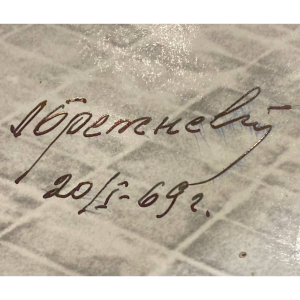 Лбрежнев
20/I-69 г.